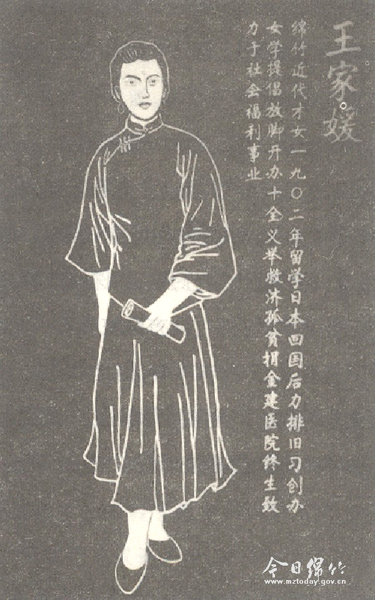 王家媛
绵竹近代才女一九〇二年留学日本回国后力排旧习创办
女学提倡放脚开办十全义举救济孤贫捐金建医院终生致
力于社会福利事业
今日绵竹
www.mztoday.gov.cn